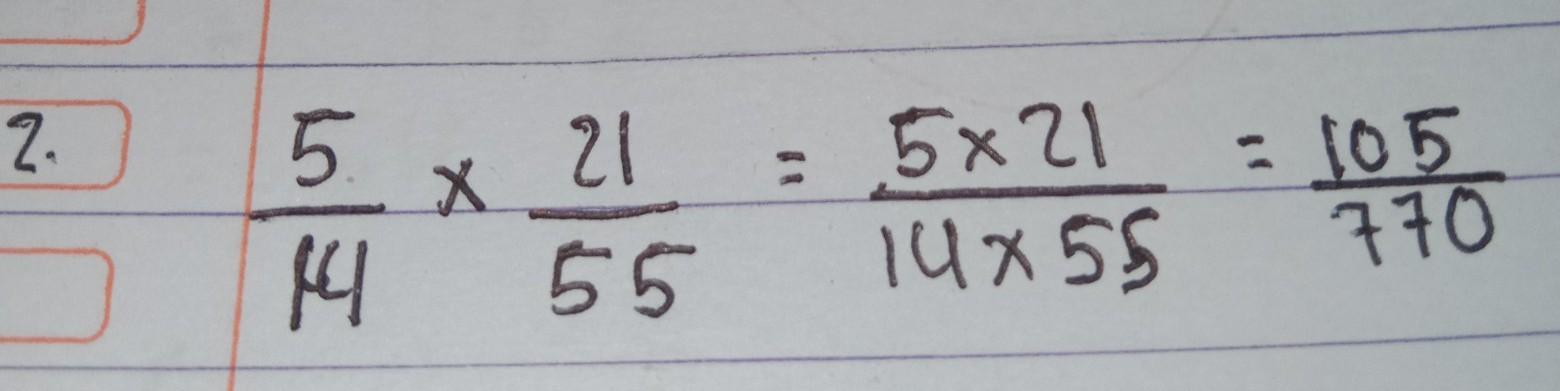 2. 5/14 × 21/55 = 5×21/14×55 = 105/770